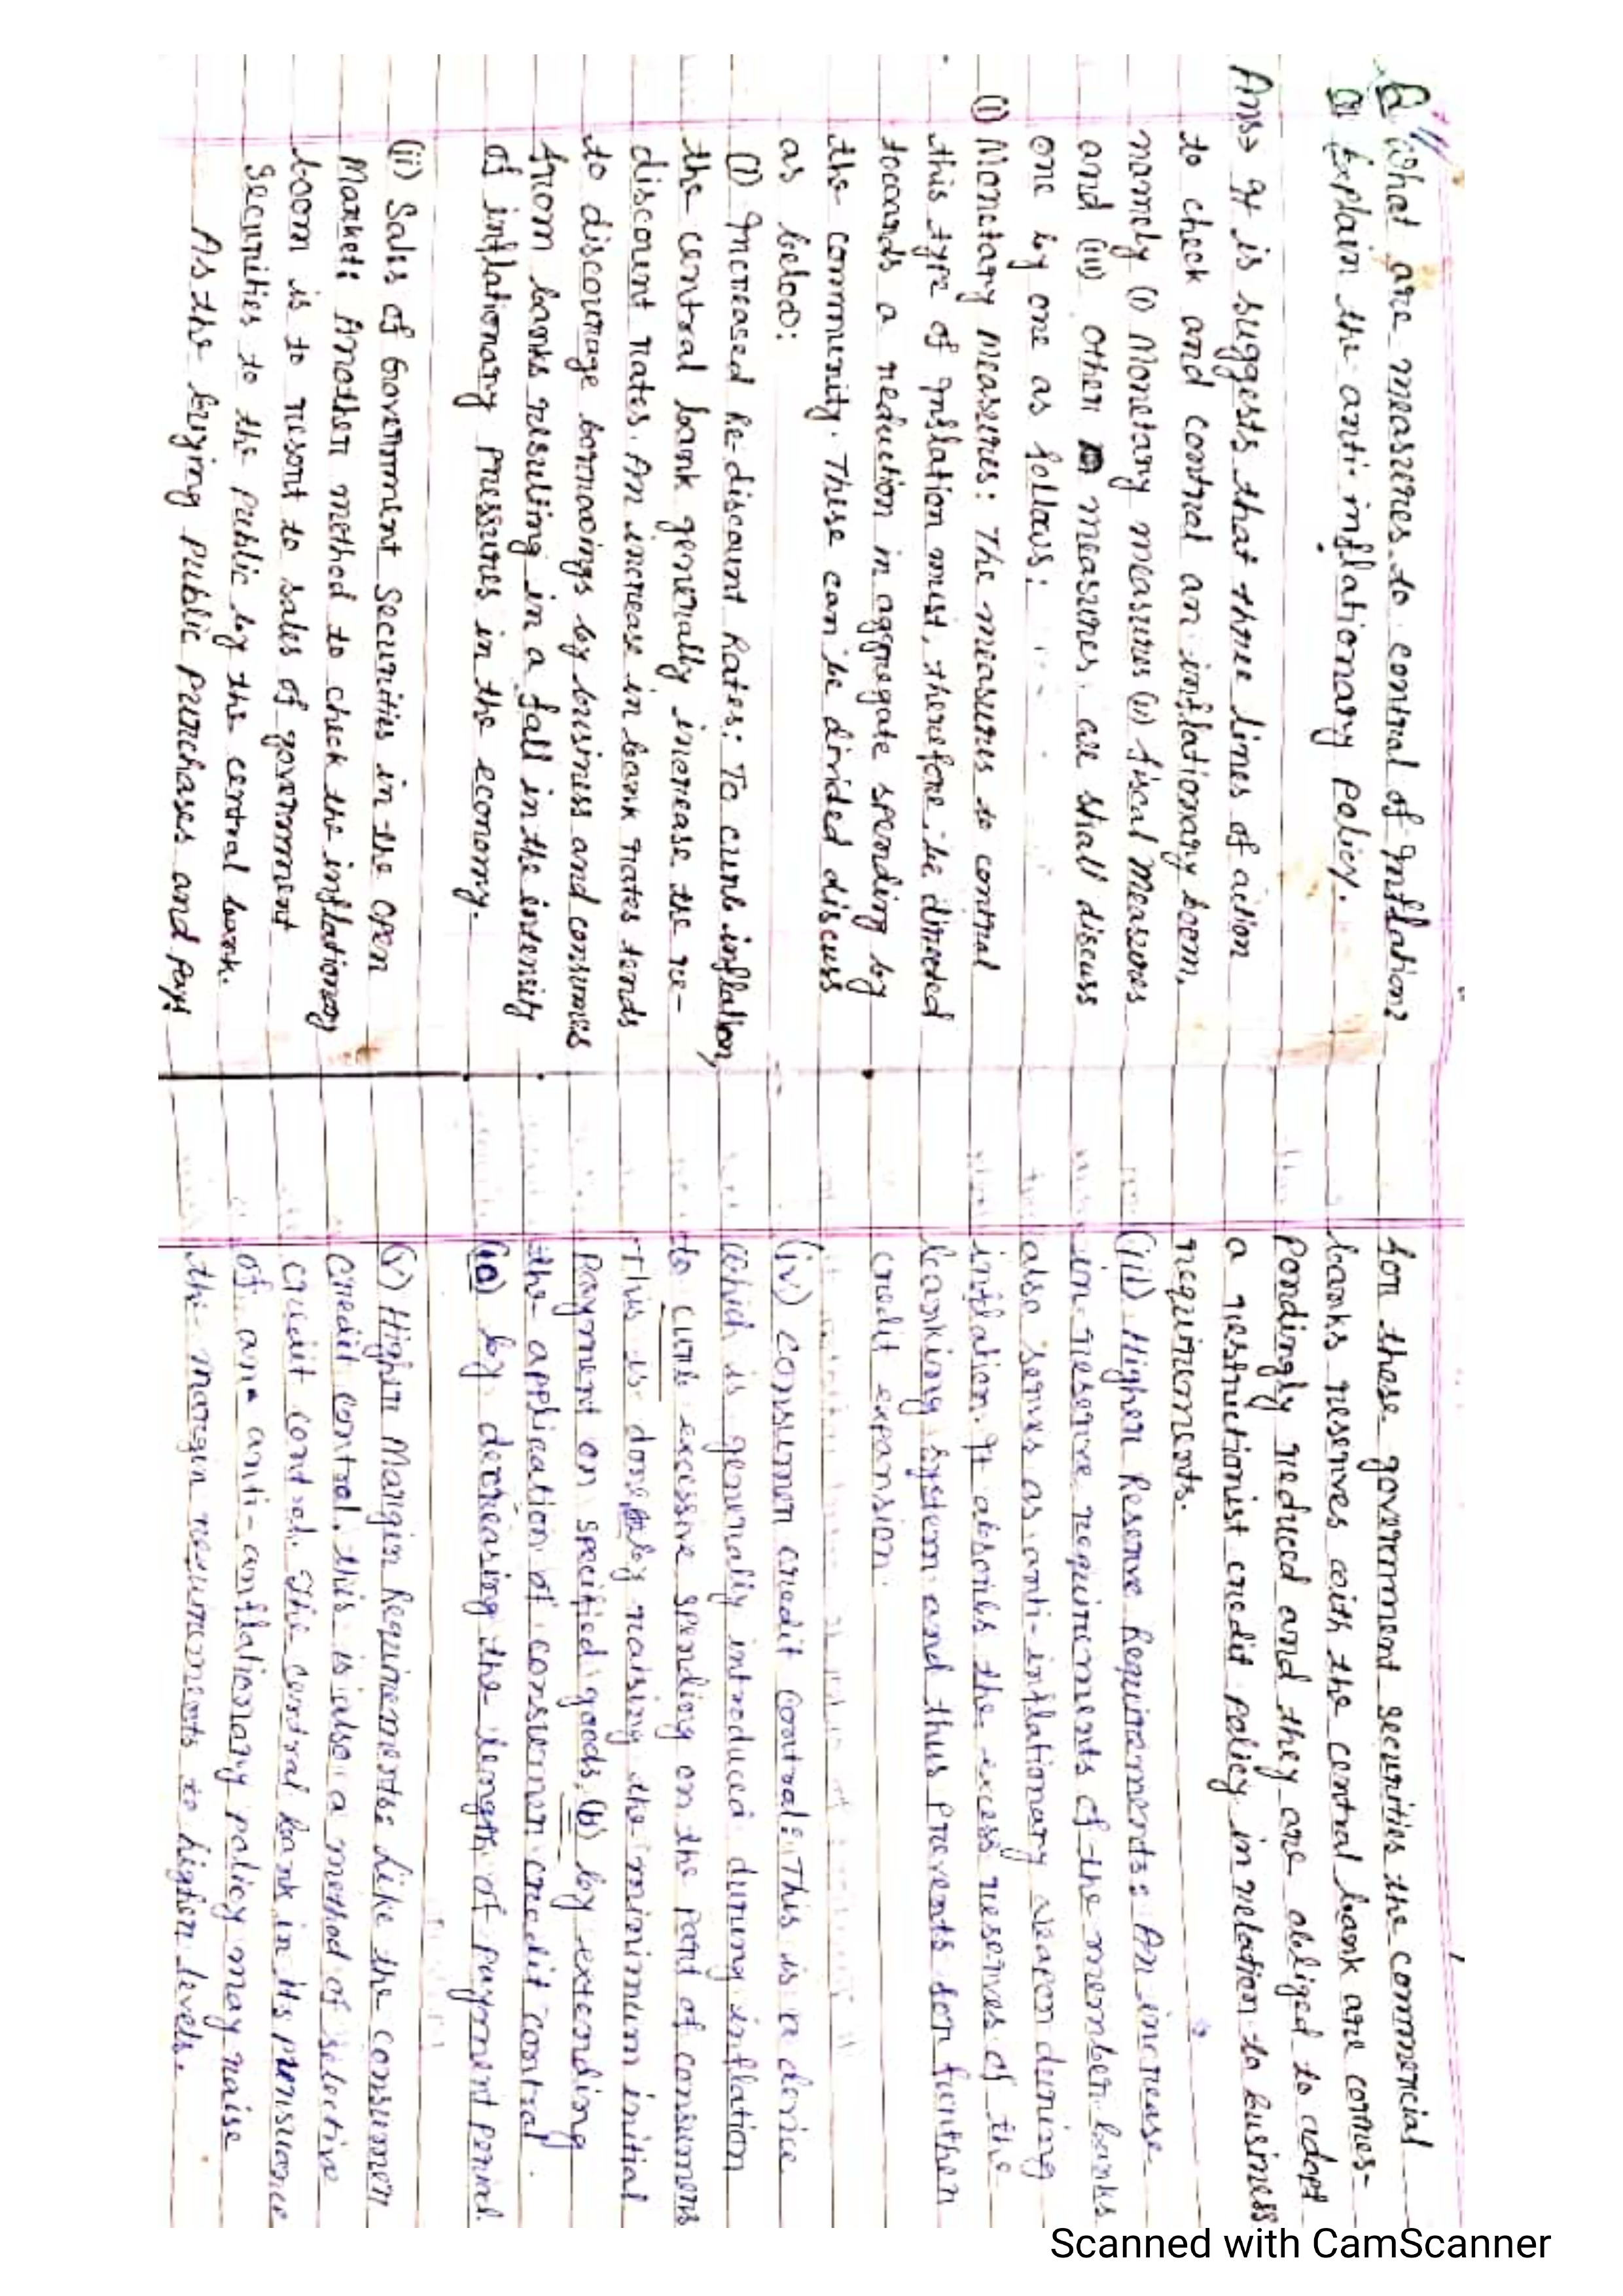 Q What are measures to control of Inflation?
Q Explain the anti-inflationary policy.
Ans→ It is suggests that three lines of action
to check and control an inflationary boom,
namely (i) Monetary measures (ii) fiscal Measures
and (iii) Other measures are shall discuss
one by one as follows:
(i) Monetary Measures: The measures to control
this type of Inflation must, therefore, be directed
towards a reduction in aggregate spending by
the community. These can be divided discuss
as below:
(i) Increased Re-discount Rates: To curb inflation,
the central bank generally increase the re-
discount rates. An increase in bank rates tends
to discourage borrowings by business and consumes
from banks resulting in a fall in the intensity
of inflationary pressures in the economy.
(ii) Sales of Government Securities in the open
Market: Another method to check the inflationary
boom is to resort to sales of government
Securities to the public by the central bank.
As the buying public purchases and pays
for those government securities the commercial
banks reserves with the central bank are corres-
pondingly reduced and they are obliged to adopt
a restrictionist credit policy in relation to business
requirements.
(iii) Higher Reserve Requirements: An increase
in reserve requirements of the member banks
also serves as anti-inflationary weapon during
inflation. It absorbs the excess reserves of the
banking system and thus prevents for further
credit expansion.
(iv) Consumer credit Control: This is a device
which is generally introduced during inflation
to curb excessive spending on the part of consumers
This is done by raising the minimum initial
payment on specified goods, (b) by extending
the application of consumer credit control
by decreasing the length of payment period.
(v) Higher Margin Requirements: Like the consumer
credit control, this is also a method of selective
credit control. The central bank in its pursuance
of an anti-inflationary policy may raise
the margin requirements to higher levels.
Scanned with CamScanner